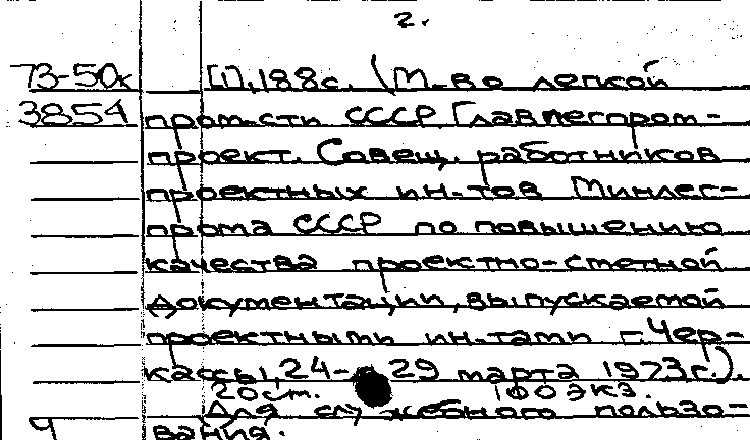 2.
73-50к [1], 188с. (М-во легкой
3854 пром-сти СССР. Главлегпром-
проект. Совещ. работников
проектных ин-тов Минлег-
прома СССР по повышению
качества проектно-сметной
документации, выпускаемой
проектными ин-тами г. Чер-
кассы, 24- 29 марта 1973г.).
20 см. 100 экз.
Для служебного пользо-
вания.